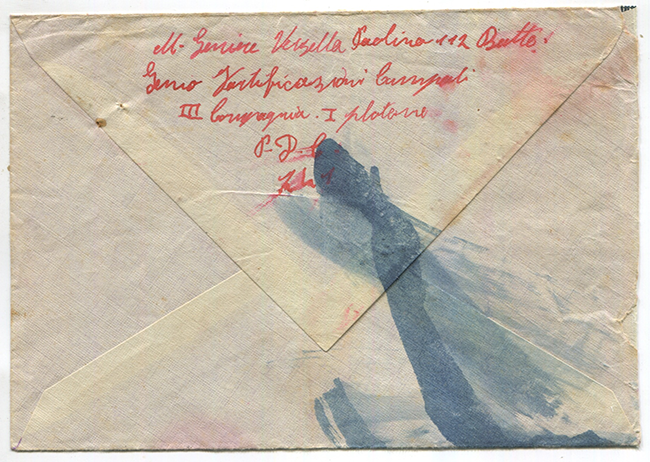 M. Geniere Versella Paolino 112 Batto.
Genio Fortificazioni Campali
III Compagnia. I plotone
P. D.